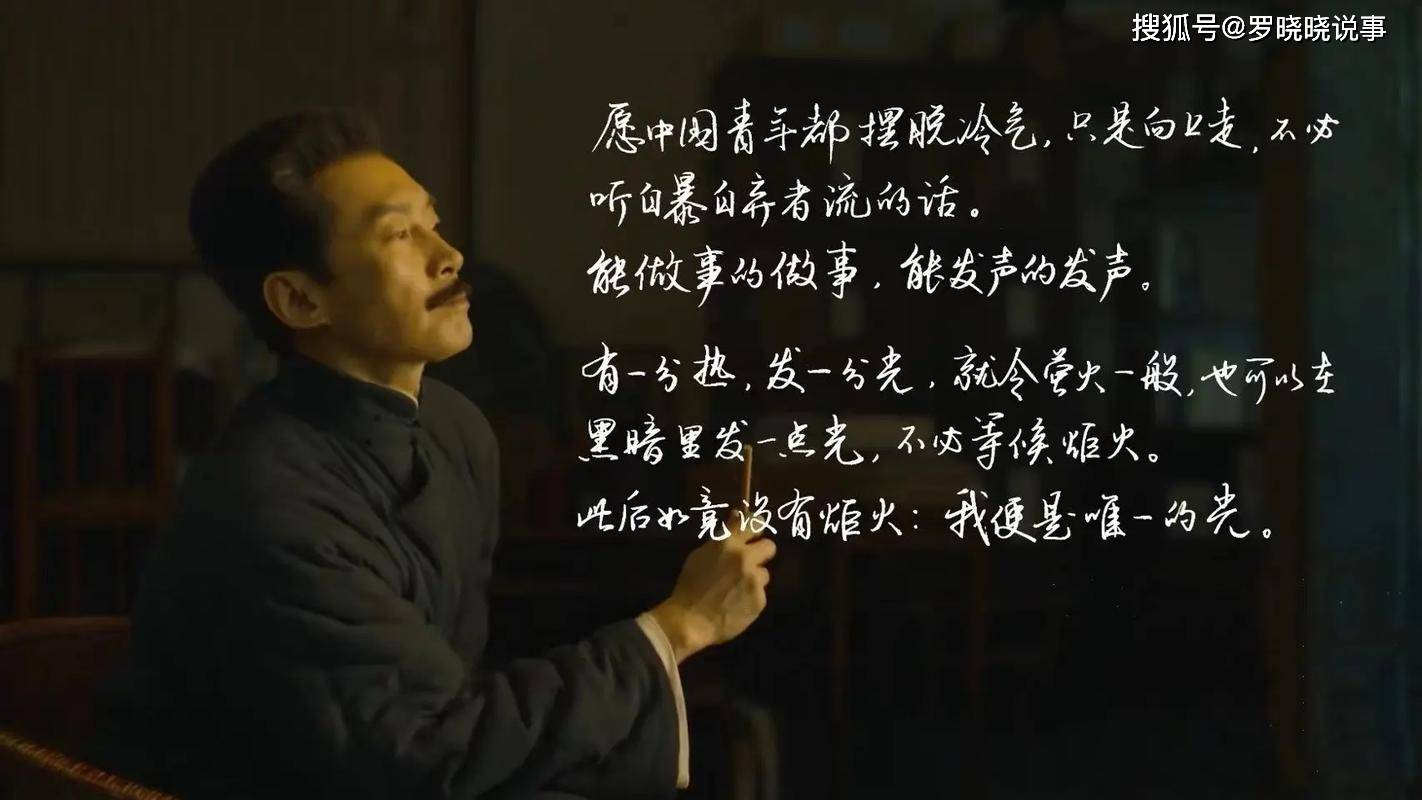 搜狐号@罗晓晓说事
愿中国青年都摆脱冷气，只是向上走，不必
听自暴自弃者流的话。
能做事的做事，能发声的发声。
有一分热，发一分光，就令萤火一般，也可以在
黑暗里发一点光，不必等候炬火。
此后如竟没有炬火：我便是唯一的光。